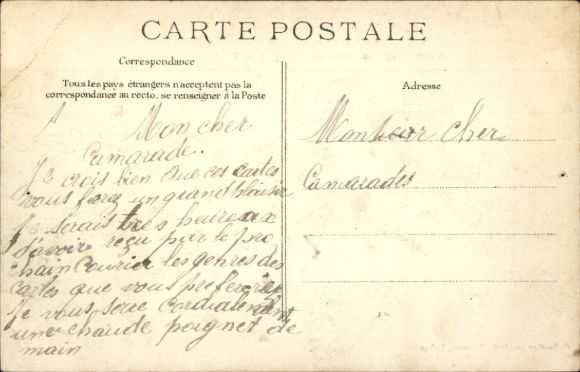 CARTE POSTALE
Correspondance
Tous les pays étrangers n'acceptent pas la
correspondance au recto, se renseigner à la Poste
Adresse
Mon cher
Camarade.
Je crois bien que ces cartes
vous ferez un grand plaisir
Je serais très heureax
d'avoir reçu par le pro
chain Courier les genres des
Cartes que vous prefereriez
Je vous serre Cordialement
une chaude poignet de
main
Monsieur cher
Camarades